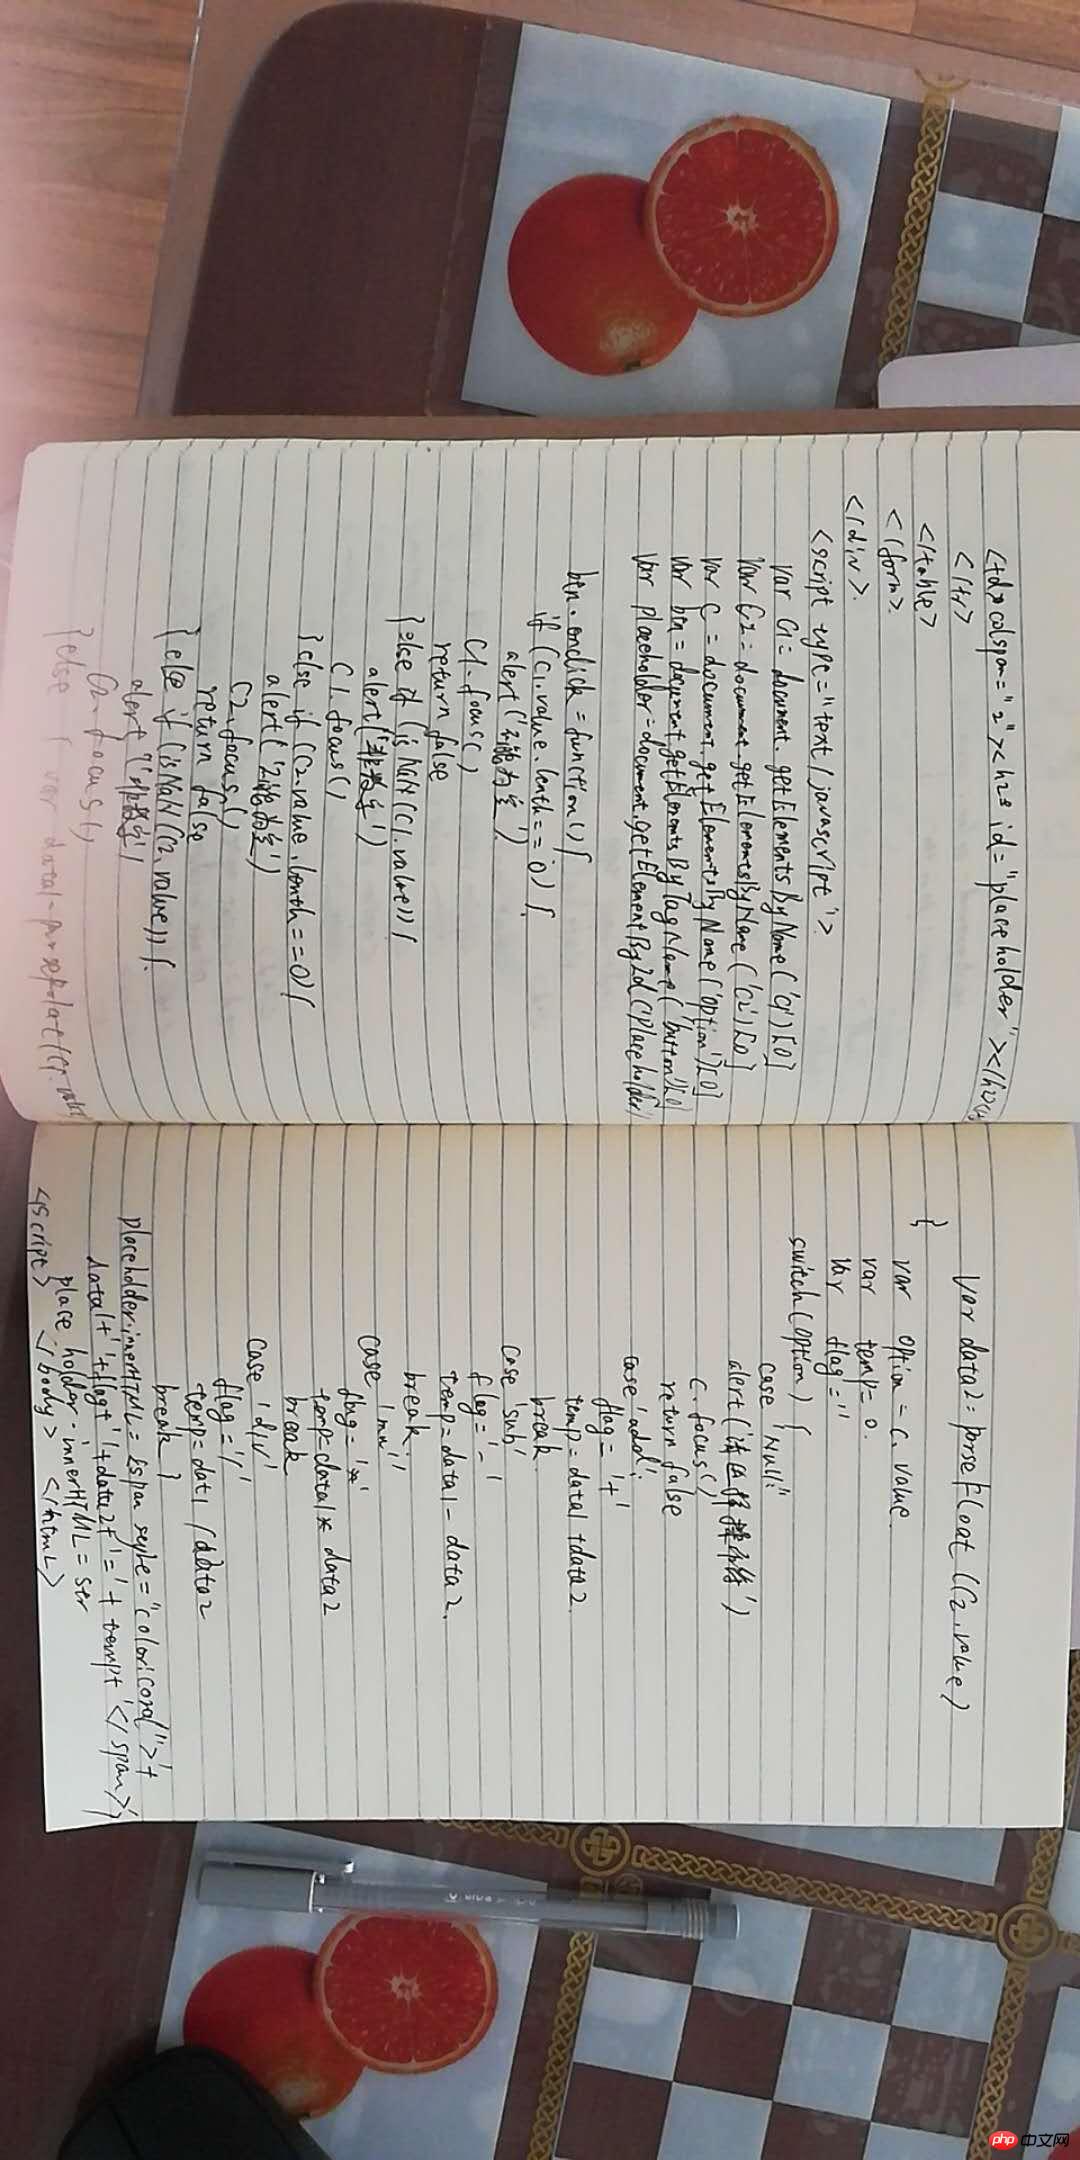 <td> colspan="2"><h2> id="placeholder"></h2>
</tr>
</table>
</form>
</div>
<script type="text/javascript">
var C1 = document.getElementsByName('C1')[0]
var C2 = document.getElementsByName('C2')[0]
var C = document.getElementsByName('option')[0]
var btn = document.getElementsByTagName('button')[0]
var placeholder = document.getElementById('placeholder')
btn.onclick = function(){
if (C1.value.lenth == 0) {
alert('不能为空')
C1.focus()
return false
}else if (isNaN(C1.value)){
alert('非数字')
C1.focus()
}else if (C2.value.lenth == 0){
alert('不能为空')
C2.focus()
return false
}else if (isNaN(C2.value)){
alert('非数字')
C2.focus()
}else { var data1 = parsefolat(C1.value)
var data2 = parseFloat(C2.value)
}
var option = C.value
var temp = 0.
var flag = ''
switch(option) {
case 'Null':
alert('请选择操作符')
C.focus()
return false
case 'add':
flag = '+'
temp = data1 + data2.
break
case 'sub'
flag = '-'
temp = data1 - data2.
break
case
flag = '*'
temp = data1 * data2
break
case 'div'
flag = '/'
temp = dat1 / data2
break }
placeholder.innerHTML = <span style="color:coral">'+
data1+''+flag+''+data2+'='+ temp+'</span>'
place.holder.innerHTML = str
</script> </body> </html>
php 中文网